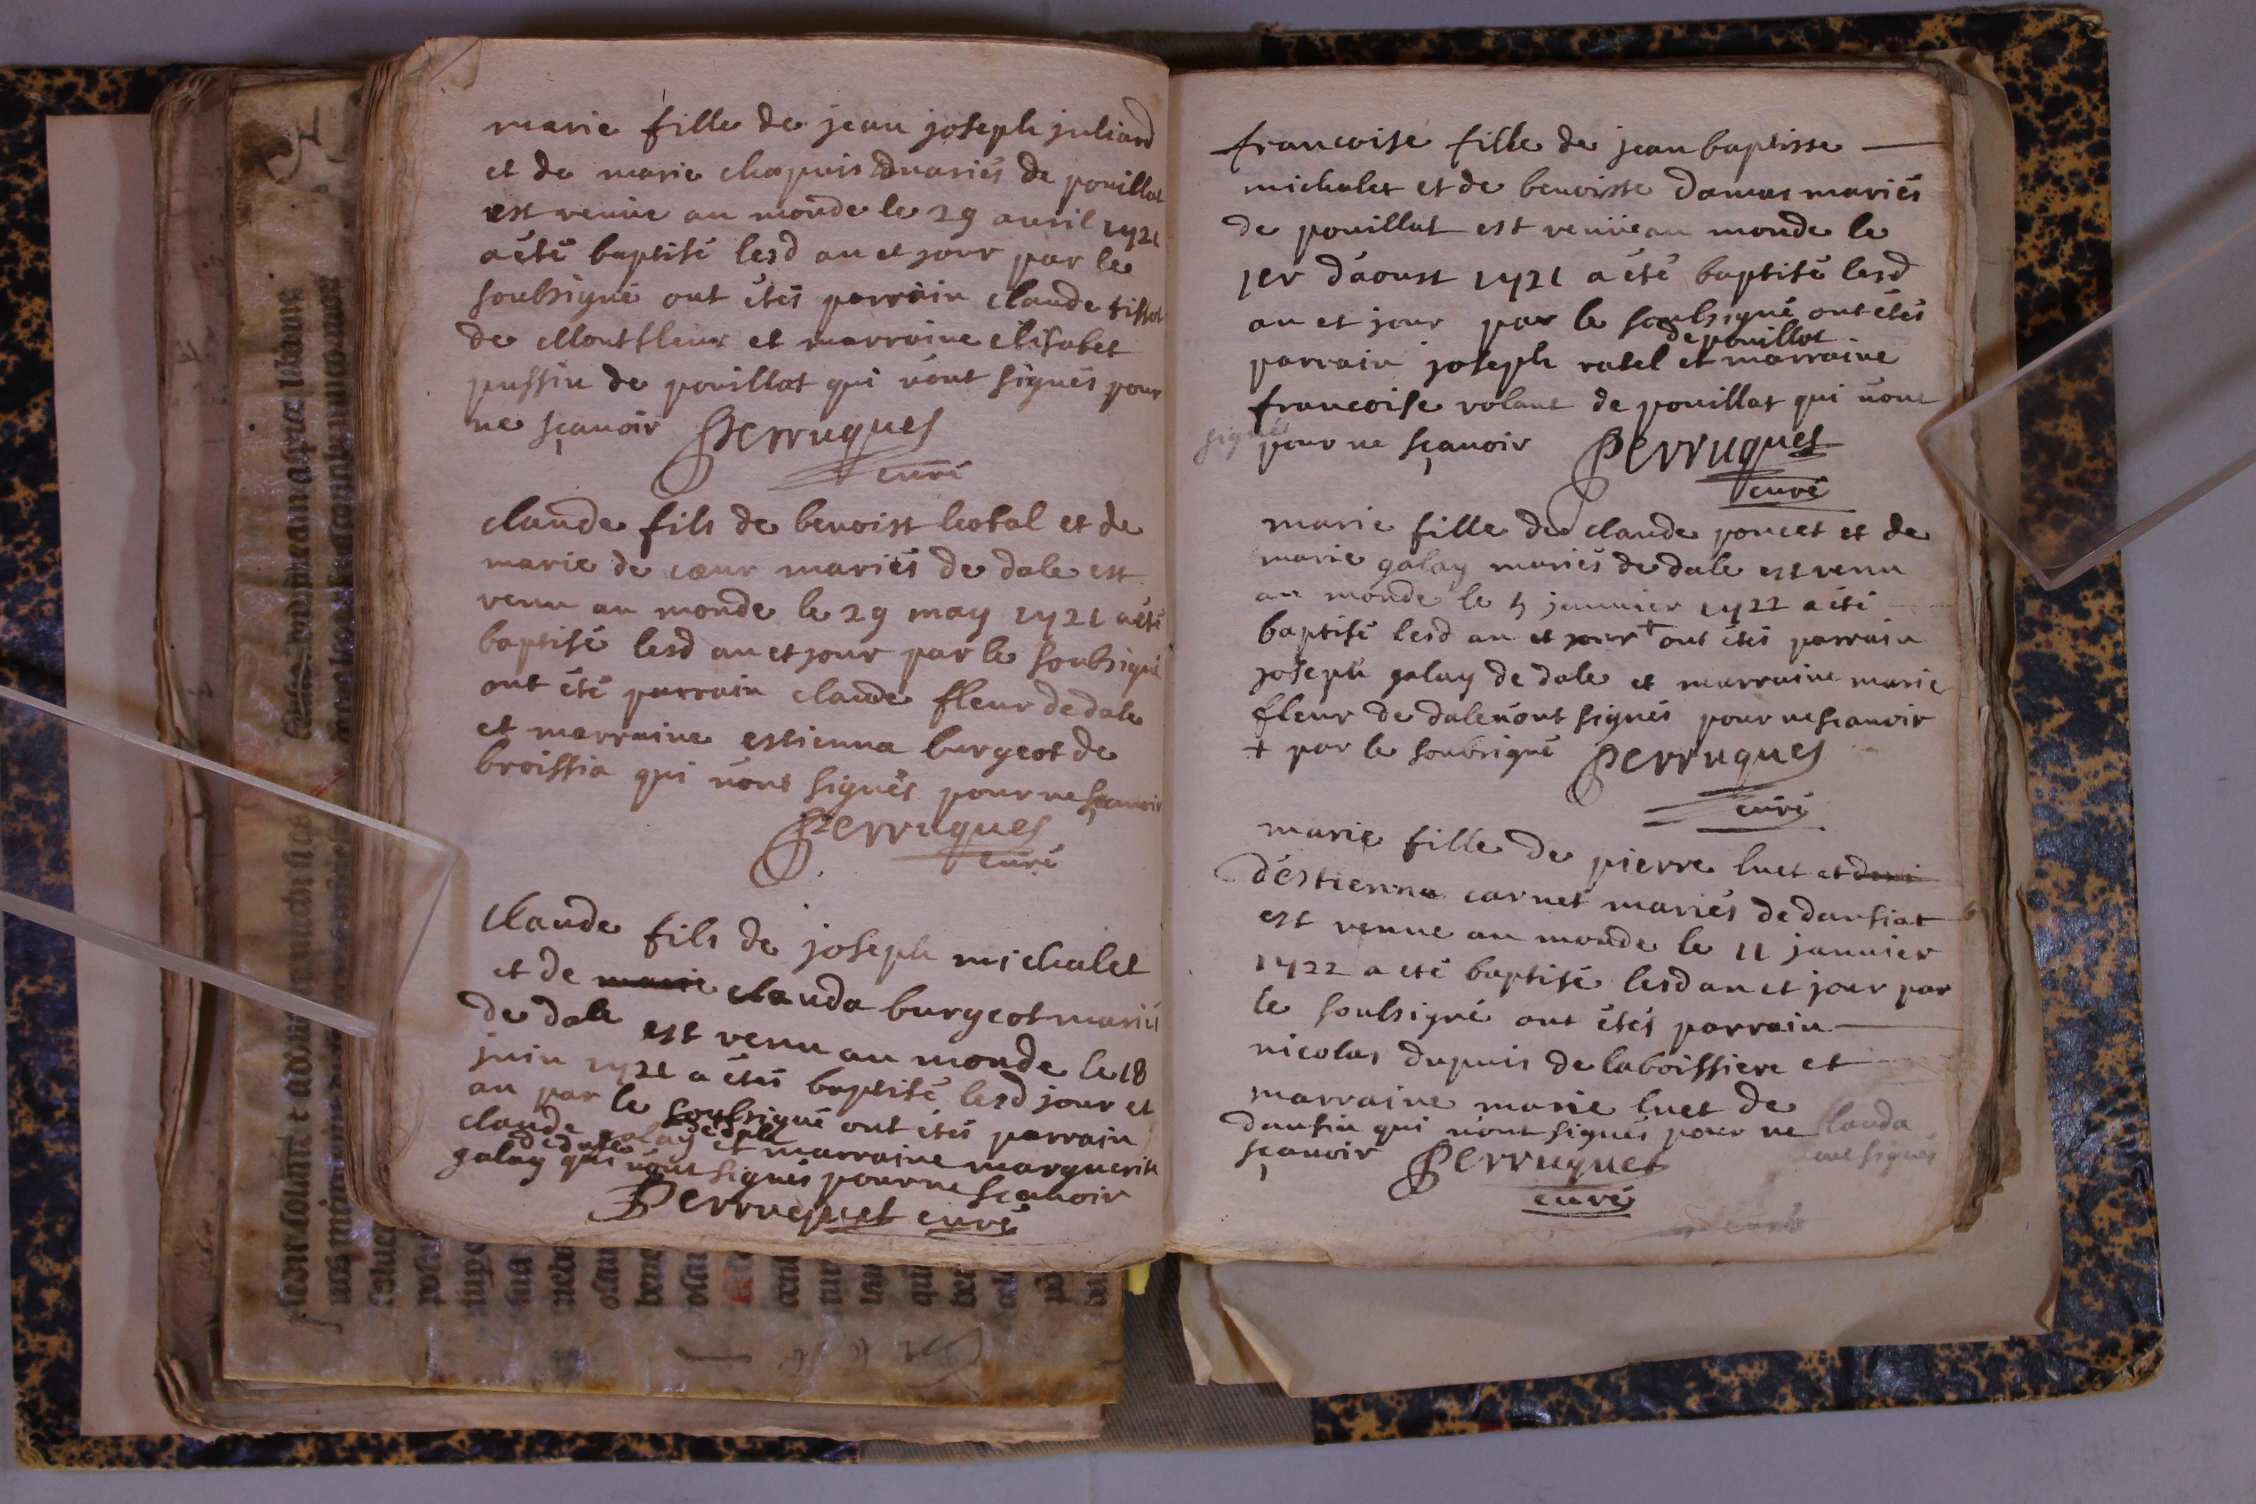 marie fille de jean joseph juliard
et de marie chapuis mariés de pouillat
est venüe au monde le 29 avril 1721
a été baptisé lesd an et jour par le
soubsigné ont étés parrain claude tissot
de Montfleur et marraine elisabet
pussin de pouillat qui n'ont signés pour
ne sçavoir Perruques
curé
claude fils de benoist hotal et de
marie de cœur mariés de dale est
venu au monde le 29 may 1721 a été
baptisé lesd an et jour par le soubsigné
ont été parrain claude fleur de dale
et marraine estienna burgeot de
broissia qui n'ont signés pour ne sçavoir
Perruques
curé
claude fils de joseph michalet
et de marie clauda burgeot mariés
de dale est venu au monde le 18
juin 1721 a étés baptisé lesd jour et
an par le soubsigné ont étés parrain
claude galay de dale et marraine marguerite
de dale
galay qui n'ont signés pour ne sçavoir
Perruques curé
francoise fille de jean baptiste
michalet et de benoiste damas mariés
de pouillat est venüe au monde le
1er d'aoust 1721 a été baptisé lesd
an et jour par le soubsigné ont étés
de pouillat
parrain joseph ratel et marraine
francoise volant de pouillat qui n'ont
signés
pour ne sçavoir Perruques
curé
marie fille de claude poncet et de
marie galay mariés de dale est venu
au monde le 5 janvier 1722 a été
baptisé lesd an et jour + ont étés parrain
joseph galay de dale et marraine marie
fleur de dale n'ont signés pour ne scavoir
+ par le soubsigné Perruques
curé
marie fille de pierre luet et
d'estienna carnet mariés de dansiat
est venue au monde le 11 janvier
1722 a eté baptisé lesd an et jour par
le soubsigné ont étés parrain
nicolas dupuis de laboissiere et
marraine marie luet de
dansia qui n'ont signés pour ne
sçavoir Perruques
curé